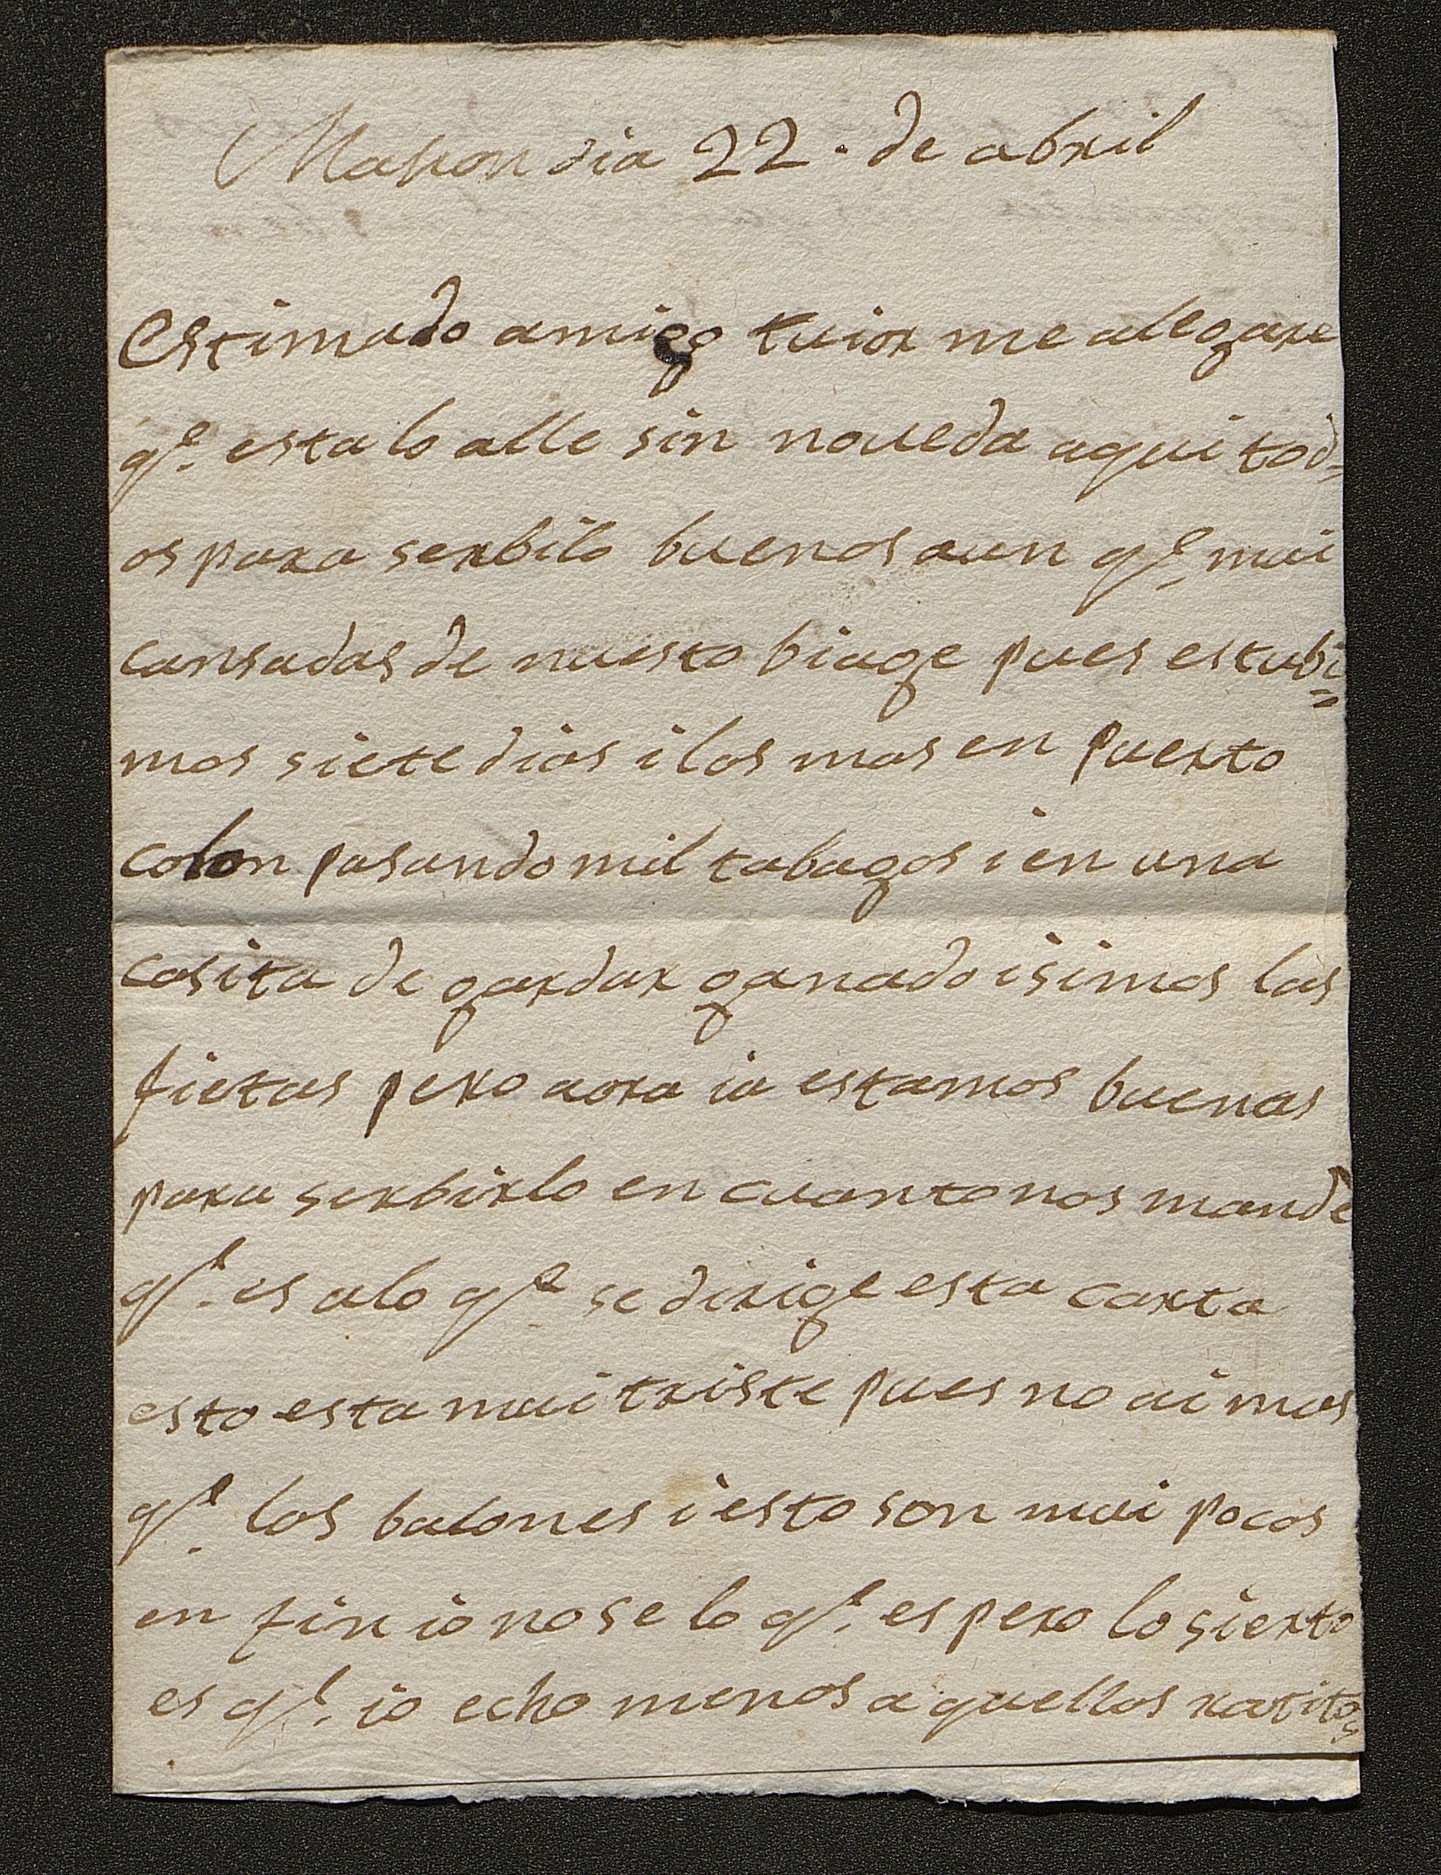 Mahon dia 22. de abril
Estimado amigo tuior me allegare
q.e esta lo alle sin noueda aqui tod=
os para serbilo buenos aun q.e mui
cansadas de nuesto biage pues estubi=
mos siete dias i los mas en puerto
colon pasando mil tabagos i en una
casita de gardar ganado isimos las
fietas pero aora ia estamos buenas
para serbirlo en cuanto nos mande
q.e es alo q.e se dirige esta carta
esto esta mui triste pues no ai mas
q.e los balones i esto son mui pocos
en fin io no se lo q.e es pero lo sierto
es q.e io echo menos aquellos ratitos